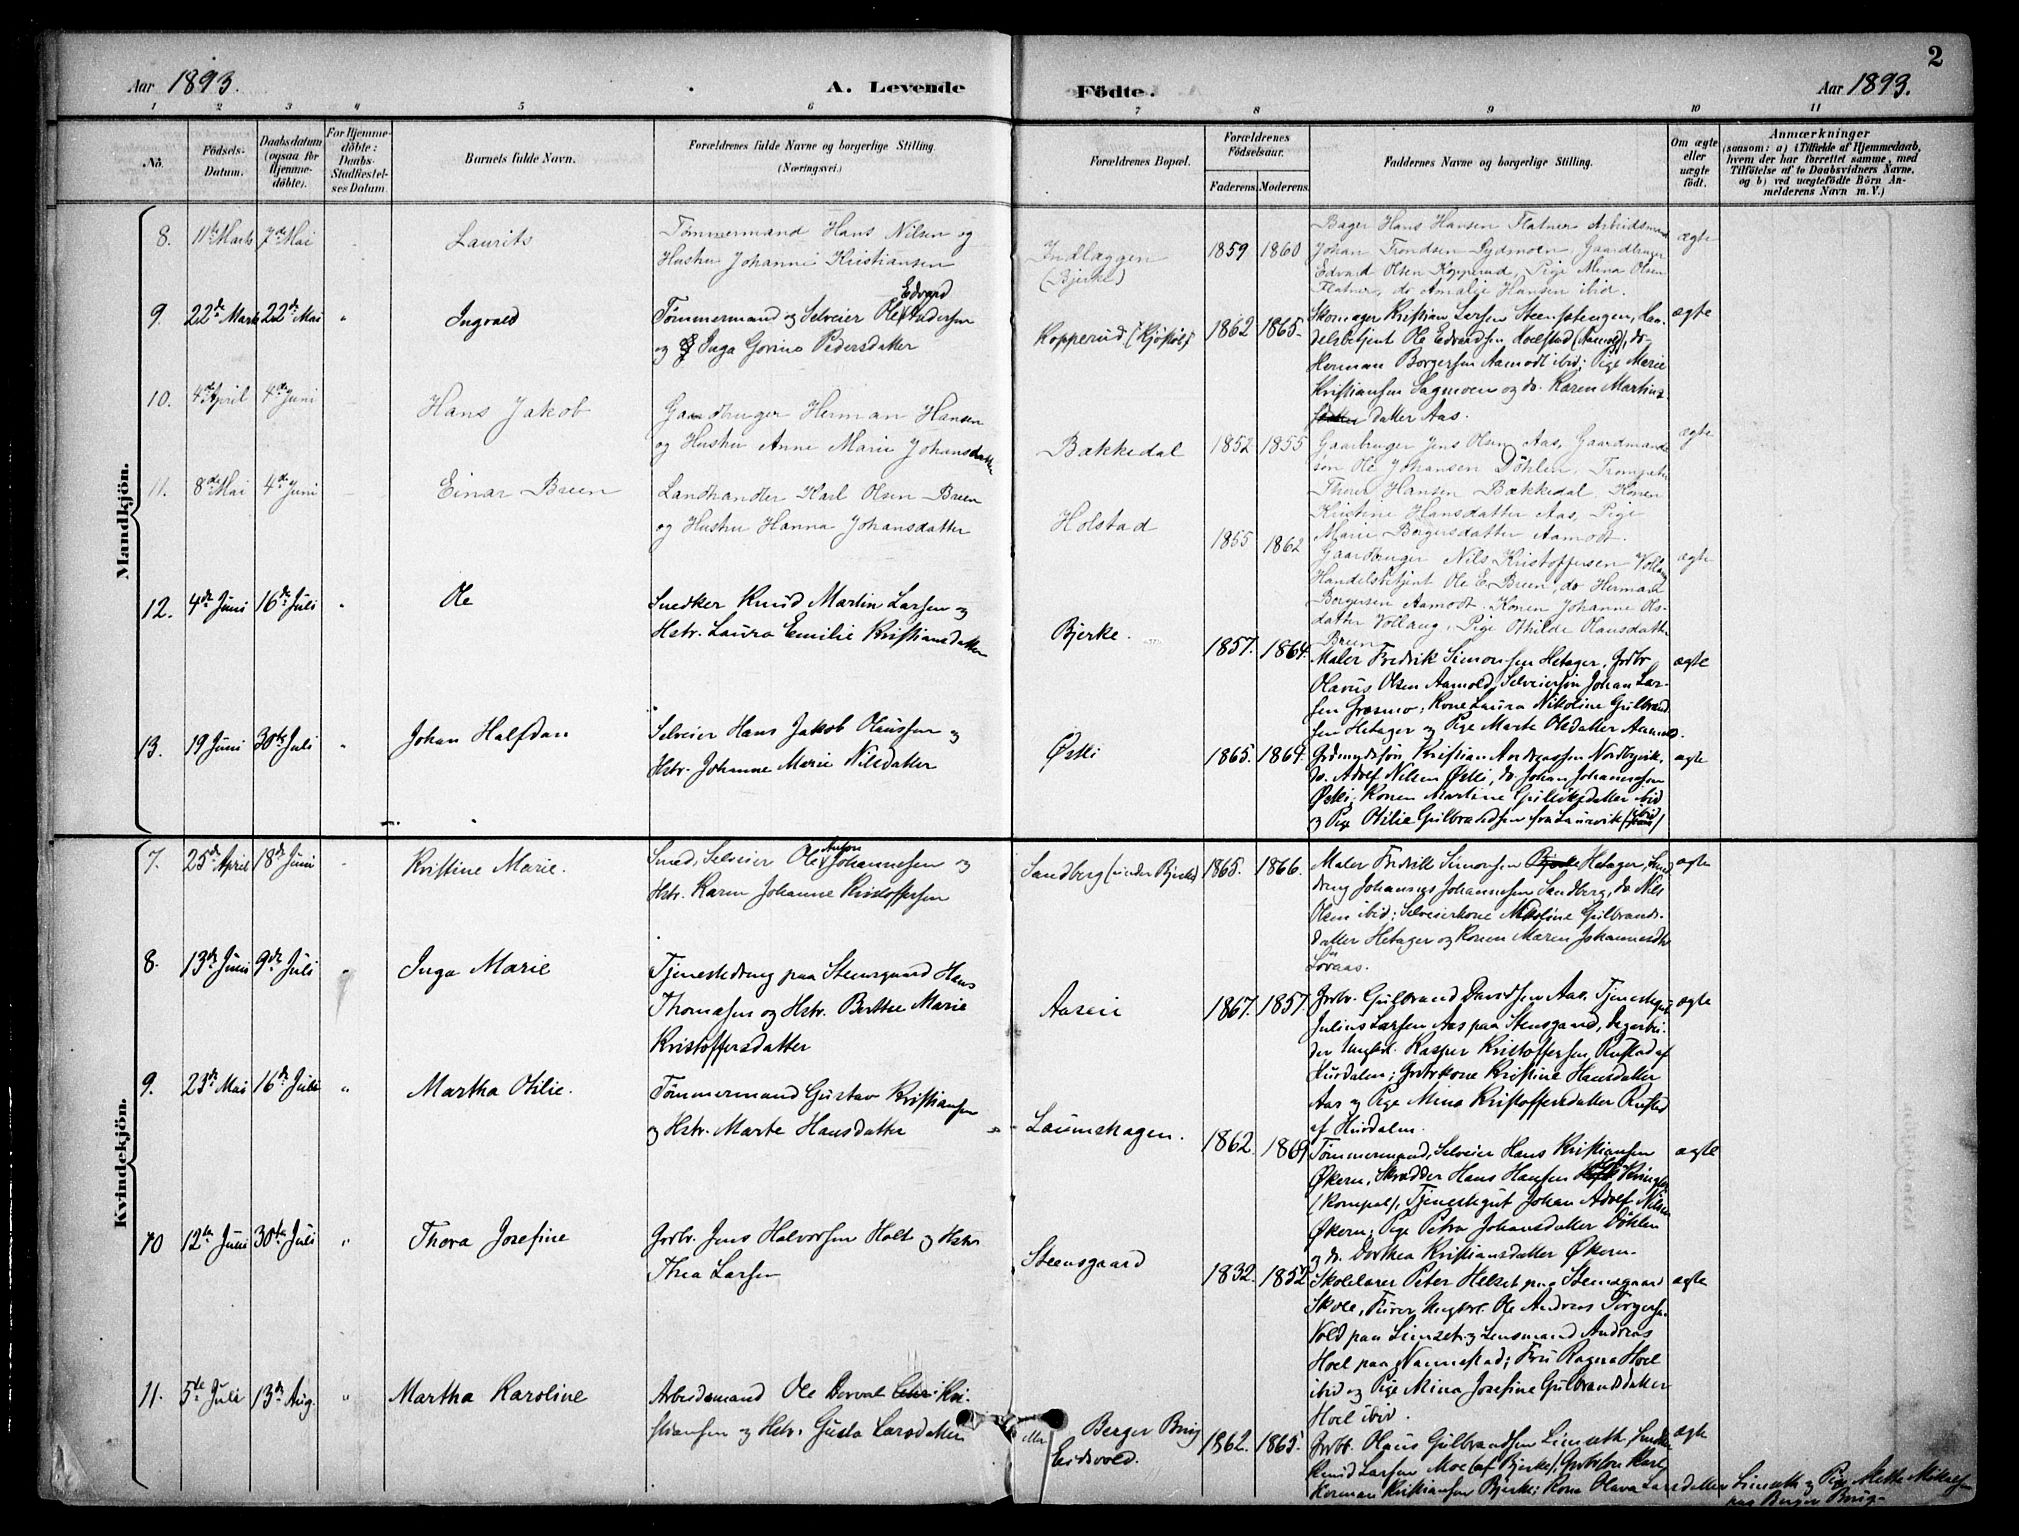 2
Aar 1893.
A. Levende
Födte.
Aar 1893.
1 2 3 4 5 6 7 8 9 10 11
No.
Födsels-
Datum.
Daabsdatum
(ogsaa for
Hjemme-
döbte).
For Hjemme-
döbte:
Daabs-
Stadfæstel-
ses Datum.
Barnets fulde Navn.
Forældrenes fulde Navne og borgerlige Stilling.
(Næringsvei.)
Forældrenes Bopæl.
Forældrenes
Födselsaar.
Faderens. Moderens.
Faddernes Navne og borgerlige Stilling.
Om ægte
eller
uægte
født.
Anmærkninger
(saasom: a) (Tilfælde af Hjemmedaab,
hvem der har forrettet samme, med
Tilföielse af to Daabsvidners Navne,
og b) ved uægtefödte Börn An-
melderens Navn m. V.)
Mandkjön.
8. 11te Marts 7de Mai
Laurits
Tømmermand Hans Nilsen og
Hustru Johanne Kristiansen
Indlæggen
(Bjerke)
1859 1860
Bager Hans Hansen Flatner Arbeidsmand
Johan Trondsen Rydmoen, Gaardbruger
Edvard Olsen Kopperud, Pige Mina Olsen
Flatner, do Amalie Hansen ibid.
ægte
9. 22de Marts 22de Mai "
Ingvald
Tømmermand og Selveier Ole Edvard Pedersen
og Inga Govine Pedersdatter
Kopperud
1862 1865.
Skomager Kristian Larsen Steensteengen, Han-
delsbetjent Ole Edvardsen Holstad (Aamold), do
Herman Borgersen Aamodt ibid; Pige Marie
Kristiansen Sagmoen og do. Karen Martins-
datter Aas.
ægte
10. 4de April 4de Juni
Hans Jakob
Gaardbruger Herman Hansen
og Hustru Anne Marie Johansdatter
Bækkedal
1852 1855
Gaarbruger Jens Olsen Aas, Gaardmands
søn Ole Johansen Döhlen, Trompeter
Thorer Hansen Bækkedal, Konen
Kristine Hansdatter Aas, Pige
Marie Borgersdatter Aamodt.
ægte
11. 8de Mai 4de Juni
Einar Breen
Landhandler Karl Olsen Breen
og Hustru Hanna Johansdatter
Holstad
1855 1862
Gaardbruger Nils Kristoffersen Vollaug
Handelsbetjent Ole E. Breen, do Herman
Borgersen Aamodt, Konen Johanne Ols-
datter Vollaug, Pige Othilde Olausdatter
Breen
ægte
12. 4de Juni 16de Juli "
Ole
Snedker Knud Martin Larsen og
Hstr. Laura Emilie Kristiansdatter
Bjerke.
1857. 1864.
Maler Fredrik Simonsen Hetager, Grdbr
Olavus Olsen Aamold, Selveiersøn Johan Lar-
sen Græsmo; Kone Laura Nikoline Gulbrand
sen Hetager og Pige Marte Olsdatter
ægte
13. 19 Juni 30te Juli "
Johan Halfdan
Selveier Hans Jakob Olaussen og
Hstr. Johanne Marie Nilsdatter
Øski
1865. 1864.
Grdmandssøn Kristian Andreassen Nordbyvik,
do. Adolf Nilsen Øski, do. Johan Johannessen
Øski; Konen Martine Gulliksdatter ibid
og Pige Otilie Gulbrandsen fra Laurvik
ægte
Kvindekjön.
7. 25de April 18de Juni
Kristine Marie.
Smed, Selveier Ole Anton Johannesen og
Hstr. Karen Johanne Kristoffersen
Sandberg (under Bjerke)
1865. 1866.
Maler Fredrik Simonsen Hetager,
dreng Johannes Johannesen Sandberg, do Nils
Olsen ibid; Selveierkone Nikoline Gulbrands-
datter Hetager og Konen Maren Johannesdtr
Lovaas.
ægte
8. 13de Juni 9de Juli "
Inga Marie
Tjenestedreng paa Steensgaard Hans
Thomasen og Hstr. Berthe Marie
Kristoffersdatter
Aaseie
1867. 1857.
Grdbr. Gulbrand Davidsen Aas, Tjenestegut
Julius Larsen Aas paa Stensgaard, Dagarbei-
der Ungkl. Kasper Kristoffersen, Rustad af
Hurdalen; Grdbrkone Kristine Hansdatter
Aas og Pige Mina Kristoffersdatter Rustad
af Hurdalen.
ægte
9. 23de Mai 16de Juli "
Martha Otilie.
Tømmermand Gustav Kristiansen
og Hstr. Marte Hansdatter
Launshagen.
1862. 1869
Tømmermand, Selveier Hans Kristiansen
Økern, Skrædder Hans Hansen
Tjenestegut Johan Adolf Nilsen
Økern; Pige Petra Johansdatter Döhlen
og do. Dorthea Kristiansdatter Økern.
ægte
10 12te Juni 30te Juli "
Thora Josefine
Grdbr. Jens Halvorsen Holt og Hstr
Thea Larsen
Steensgaard
1832. 1852
Skolelærer Peter Helset paa Stensgaard
Skole, Furer, Ungkrl. Ole Andreas Torgersen
Vold paa Limset og Lensmand Andreas
Hoel paa Nannestad; Fru Ragna Hoel
ibid og Pige Mina Josefine Gulbrandsdatter
Hoel ibid.
ægte
11. 5te Juli 13de Aug. "
Martha Karoline
Arbeidsmand Ole Dorval Kri-
stiansen og Hstr. Gusta Larsdatter
eller Berger Brug
Eidsvold.
1862. 1865.
Grdbr. Olaus Gulbrandsen Limseth,
Knud Larsen Moe (af Bjerke), Karl
Herman Kristiansen Bjerke; Kone Olava Larsdatter Limseth og Pige Mette Mikalsen
paa Berger Brug.
ægte